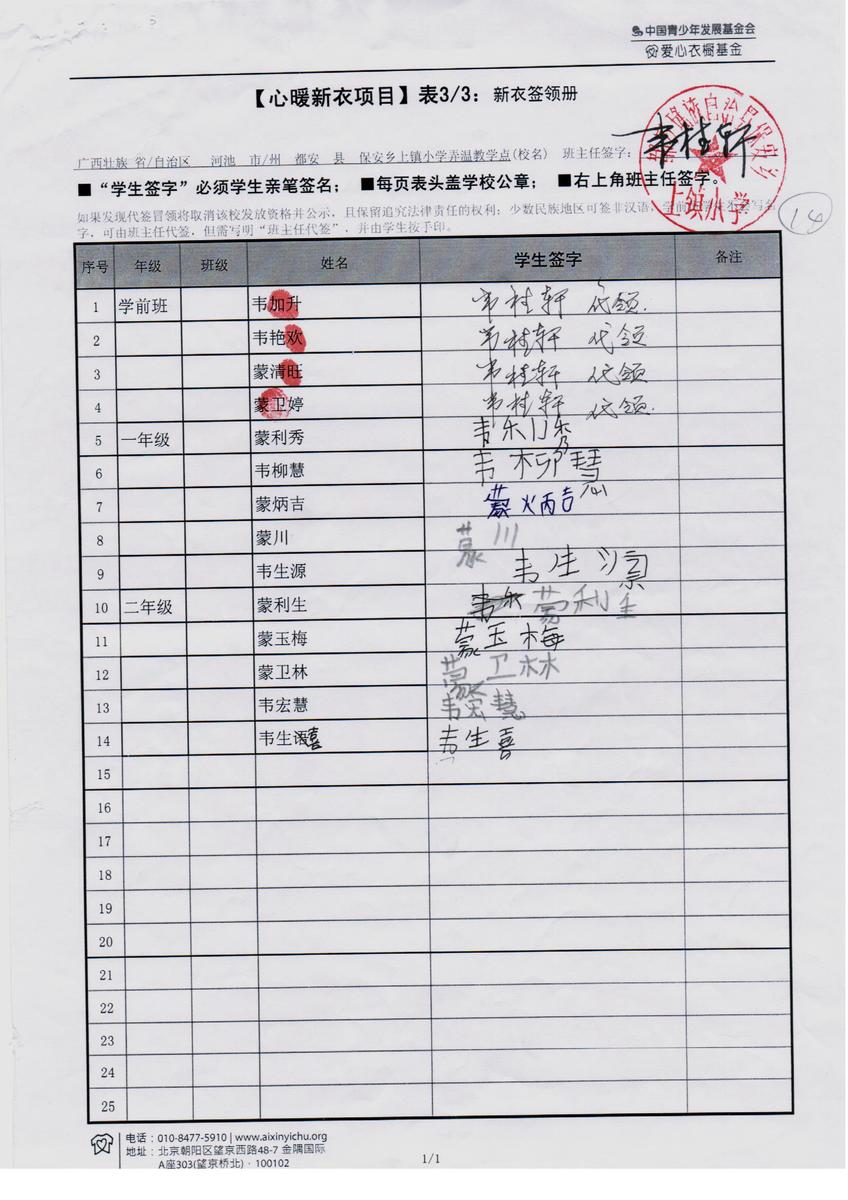 中国青少年发展基金会
爱心衣橱基金
【心暖新衣项目】表3/3：新衣签领册
广西壮族 省/自治区 河池 市/州 都安 县 保安乡上镇小学弄温教学点(校名) 班主任签字：韦桂轩
■“学生签字”必须学生亲笔签名； ■每页表头盖学校公章； ■右上角班主任签字。
上镇小学
如果发现代签冒领将取消该校发放资格并公示，且保留追究法律责任的权利；少数民族地区可签非汉语，学前
字，可由班主任代签，但需写明“班主任代签”，并由学生按手印。
14
序号 年级 班级 姓名 学生签字 备注
1 学前班 韦加升 韦桂轩 代领
2 韦艳欢 韦桂轩 代领
3 蒙清旺 韦桂轩 代领
4 蒙卫婷 韦桂轩 代领
5 一年级 蒙利秀
6 韦柳慧 韦柳慧
7 蒙炳吉 蒙炳吉
8 蒙川 蒙川
9 韦生源 韦生源
10 二年级 蒙利生 蒙利生
11 蒙玉梅 蒙玉梅
12 蒙卫林 蒙卫林
13 韦宏慧 韦宏慧
14 韦生喜 韦生喜
15
16
17
18
19
20
21
22
23
24
25
电话：010-8477-5910 | www.aixinyichu.org
地址：北京朝阳区望京西路48-7 金隅国际
A座303(望京桥北)·100102
1/1